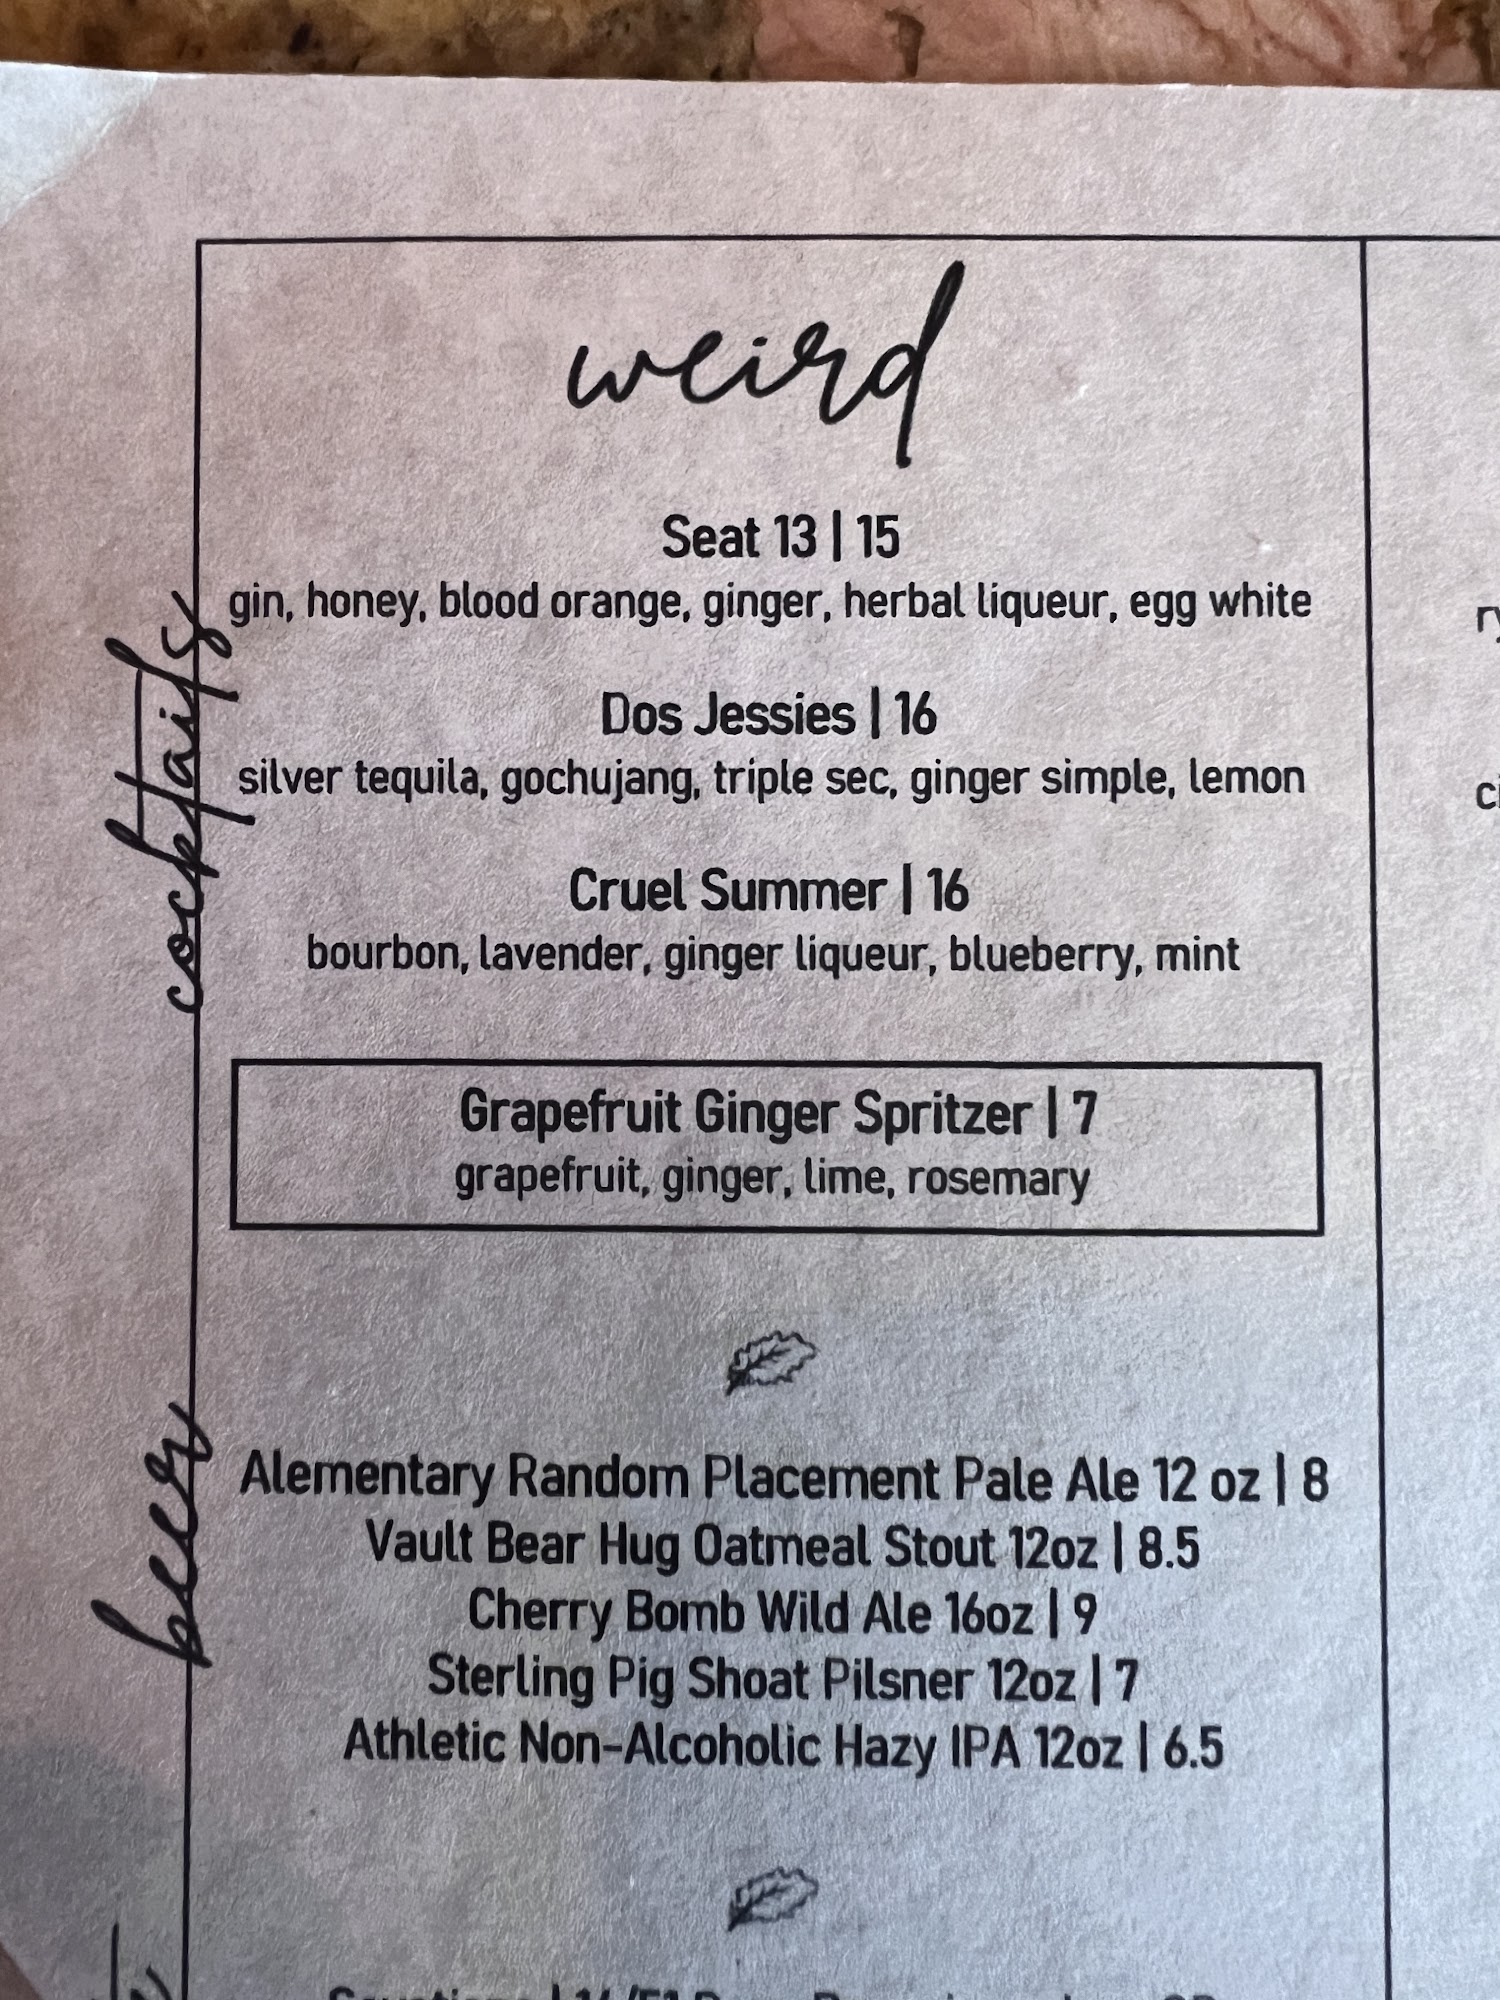 weird
cocktails
Seat 13 | 15
gin, honey, blood orange, ginger, herbal liqueur, egg white
Dos Jessies | 16
silver tequila, gochujang, triple sec, ginger simple, lemon
Cruel Summer | 16
bourbon, lavender, ginger liqueur, blueberry, mint
Grapefruit Ginger Spritzer | 7
grapefruit, ginger, lime, rosemary
beer
Alementary Random Placement Pale Ale 12 oz | 8
Vault Bear Hug Oatmeal Stout 12oz | 8.5
Cherry Bomb Wild Ale 16oz | 9
Sterling Pig Shoat Pilsner 12oz | 7
Athletic Non-Alcoholic Hazy IPA 12oz | 6.5